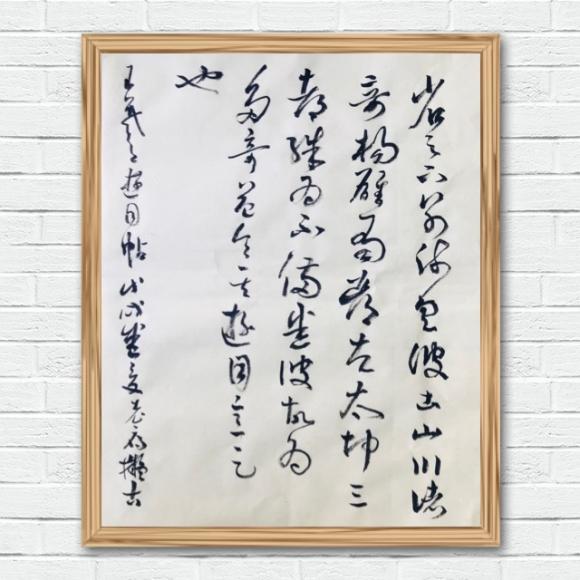 省足下別疏具彼土山川諸
奇楊雄蜀都左太沖三
都殊為不備悉彼故為
多奇益令其遊目意足
也
王羲之遊目帖戊戌擬古